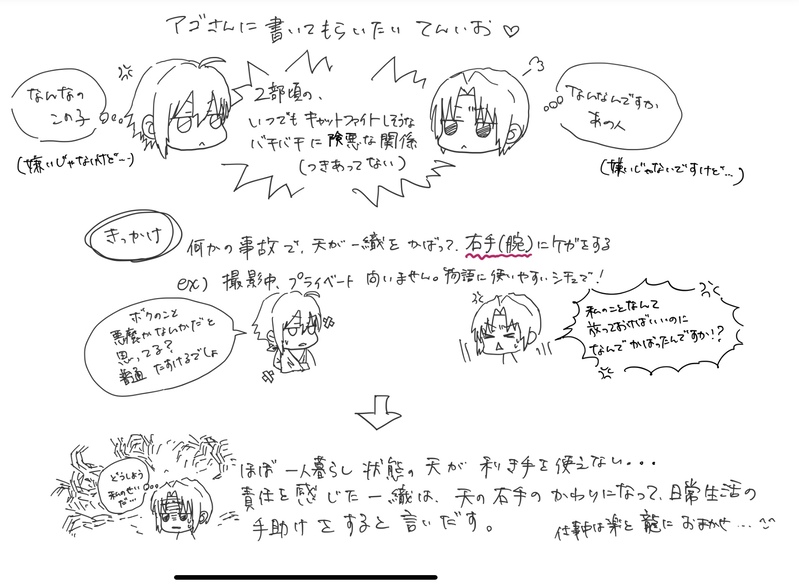 アゴさんに書いてもらいたい てんいお♡
なんなの
この子
(嫌いじゃないけど〜)
2部頃の、
いつでもキャットファイトしそうな
バチバチに険悪な関係
(つきあってない)
なんなんですか
あの人
(嫌いじゃないですけど…)
きっかけ
何かの事故で、天が一織をかばって、右手(腕)にケガをする
ex) 撮影中、プライベート 問いません。物語に使いやすいシチュで！
ボクのこと
悪魔かなんかだと
思ってる？
普通 たすけるでしょ
私のことなんて
放っておけばいいのに
なんでかばったんですか!?
どうしよう
私のせい
だ…
ほぼ一人暮らし状態の天が利き手を使えない・・・
責任を感じた一織は、天の右手のかわりになって、日常生活の
手助けをすると言いだす。
仕事中は楽と龍におまかせ…